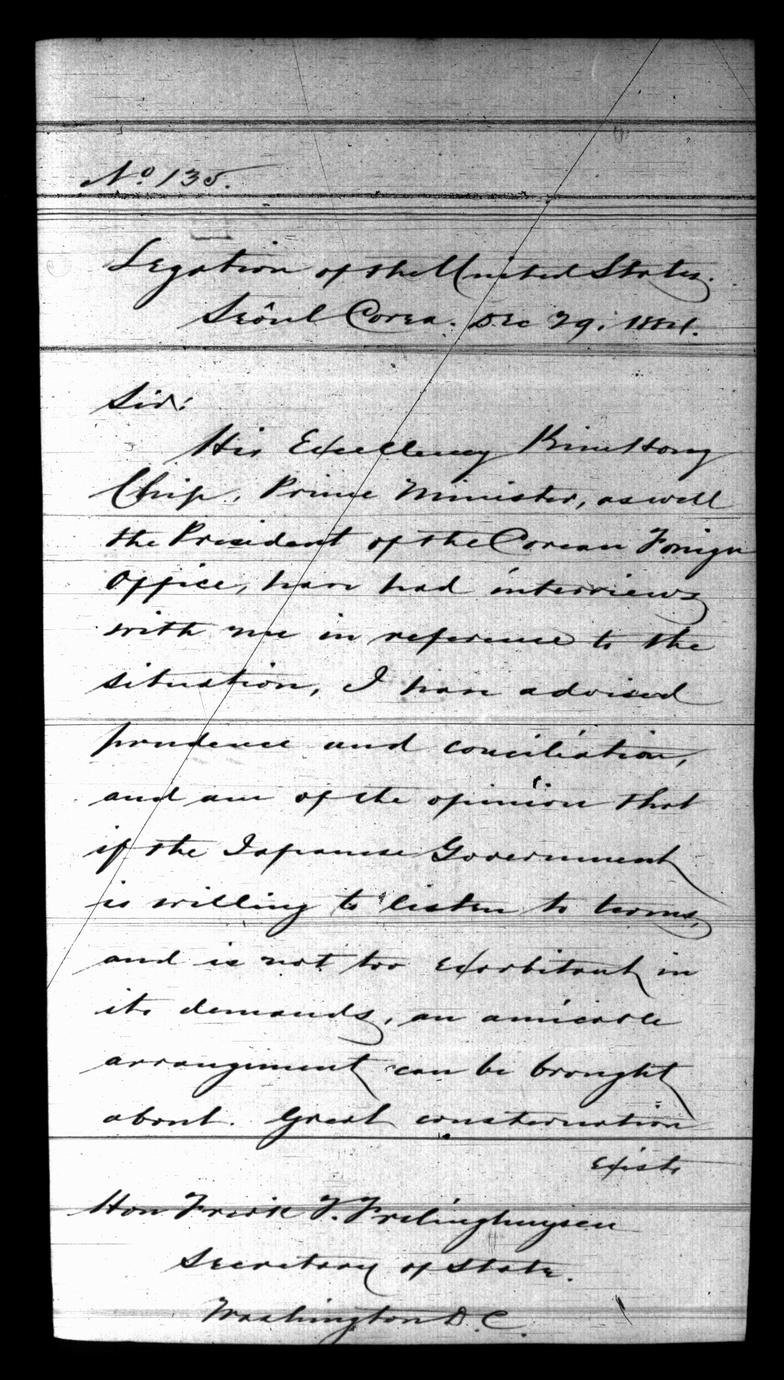 No 135.
Legation of the United States.
Seôul Corea. Dec 29, 1884.
Sir:
His Excellency Kim Hong
Chip, Prime Minister, as well
the President of the Corean Foreign
Office, have had interviews
with me in reference to the
situation, I have advised
prudence and conciliation,
and am of the opinion that
if the Japanese Government
is willing to listen to terms,
and is not too exorbitant in
its demands, an amicable
arrangement can be brought
about. Great consternation
exists
Hon Fredk T. Frelinghuysen
Secretary of State.
Washington D.C.